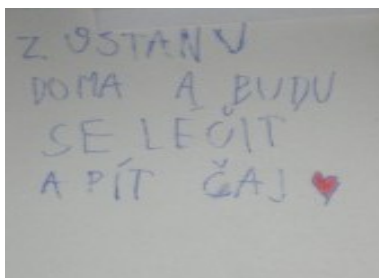 Z USTANU
DOMA A BUDU
SE LÉČIT
A PÍT ČAJ ♥